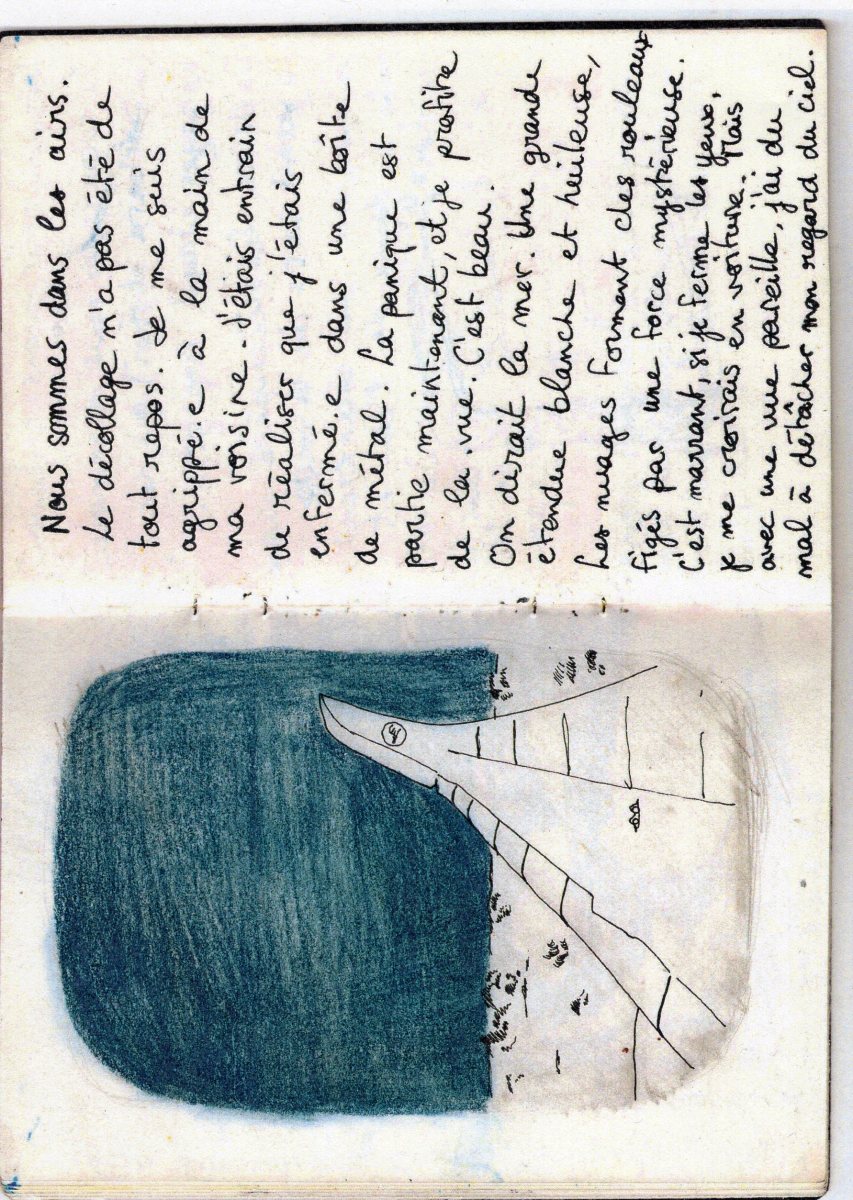 Nous sommes dans les airs.
Le décollage n'a pas été de
tout repos. Je me suis
agrippé.e à la main de
ma voisine. J'étais entrain
de réaliser que j'étais
enfermé.e dans une boîte
de métal. La panique est
partie maintenant, et je profite
de la vue. C'est beau.
On dirait la mer. Une grande
étendue blanche et huileuse,
Les nuages forment des rouleaux
figés par une force mystérieuse.
C'est marrant, si je ferme les yeux,
je me croirais en voiture. Mais
avec une vue pareille, j'ai du
mal à détâcher mon regard du ciel.